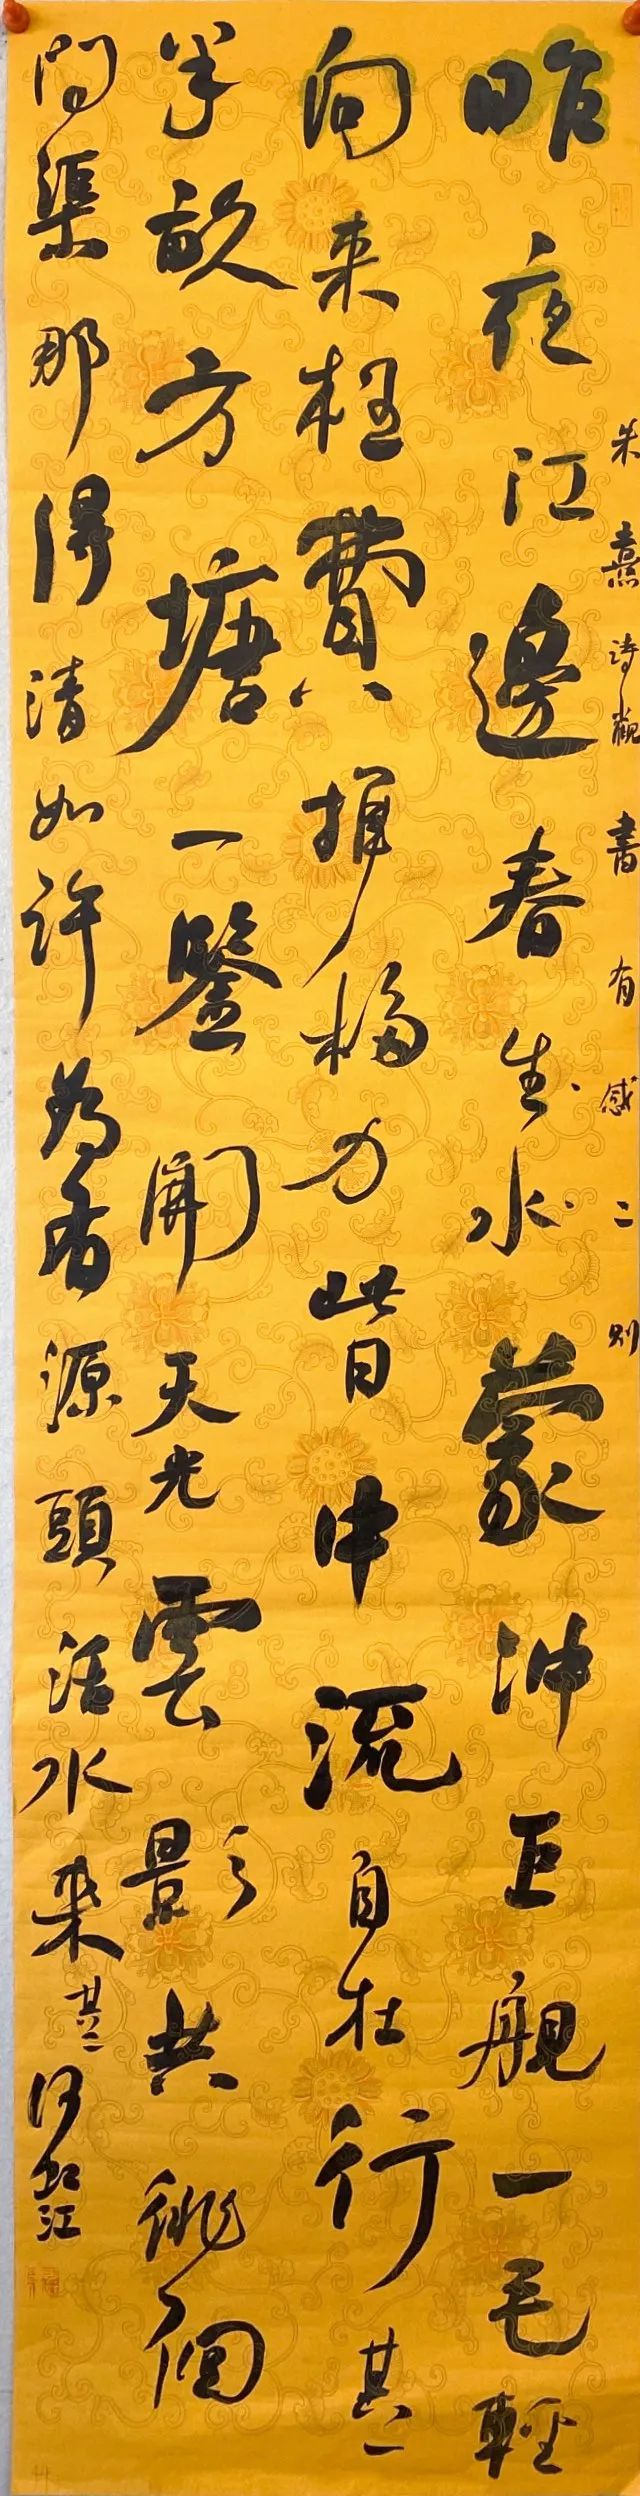 朱熹诗觀書有感二则
昨夜江邊春生水蒙冲巨艦一毛輕
向来枉費推移力此日中流自在行其一
半畝方塘一鑒開天光雲影共徘徊
问渠那得清如许为有源頭活水来其二
江